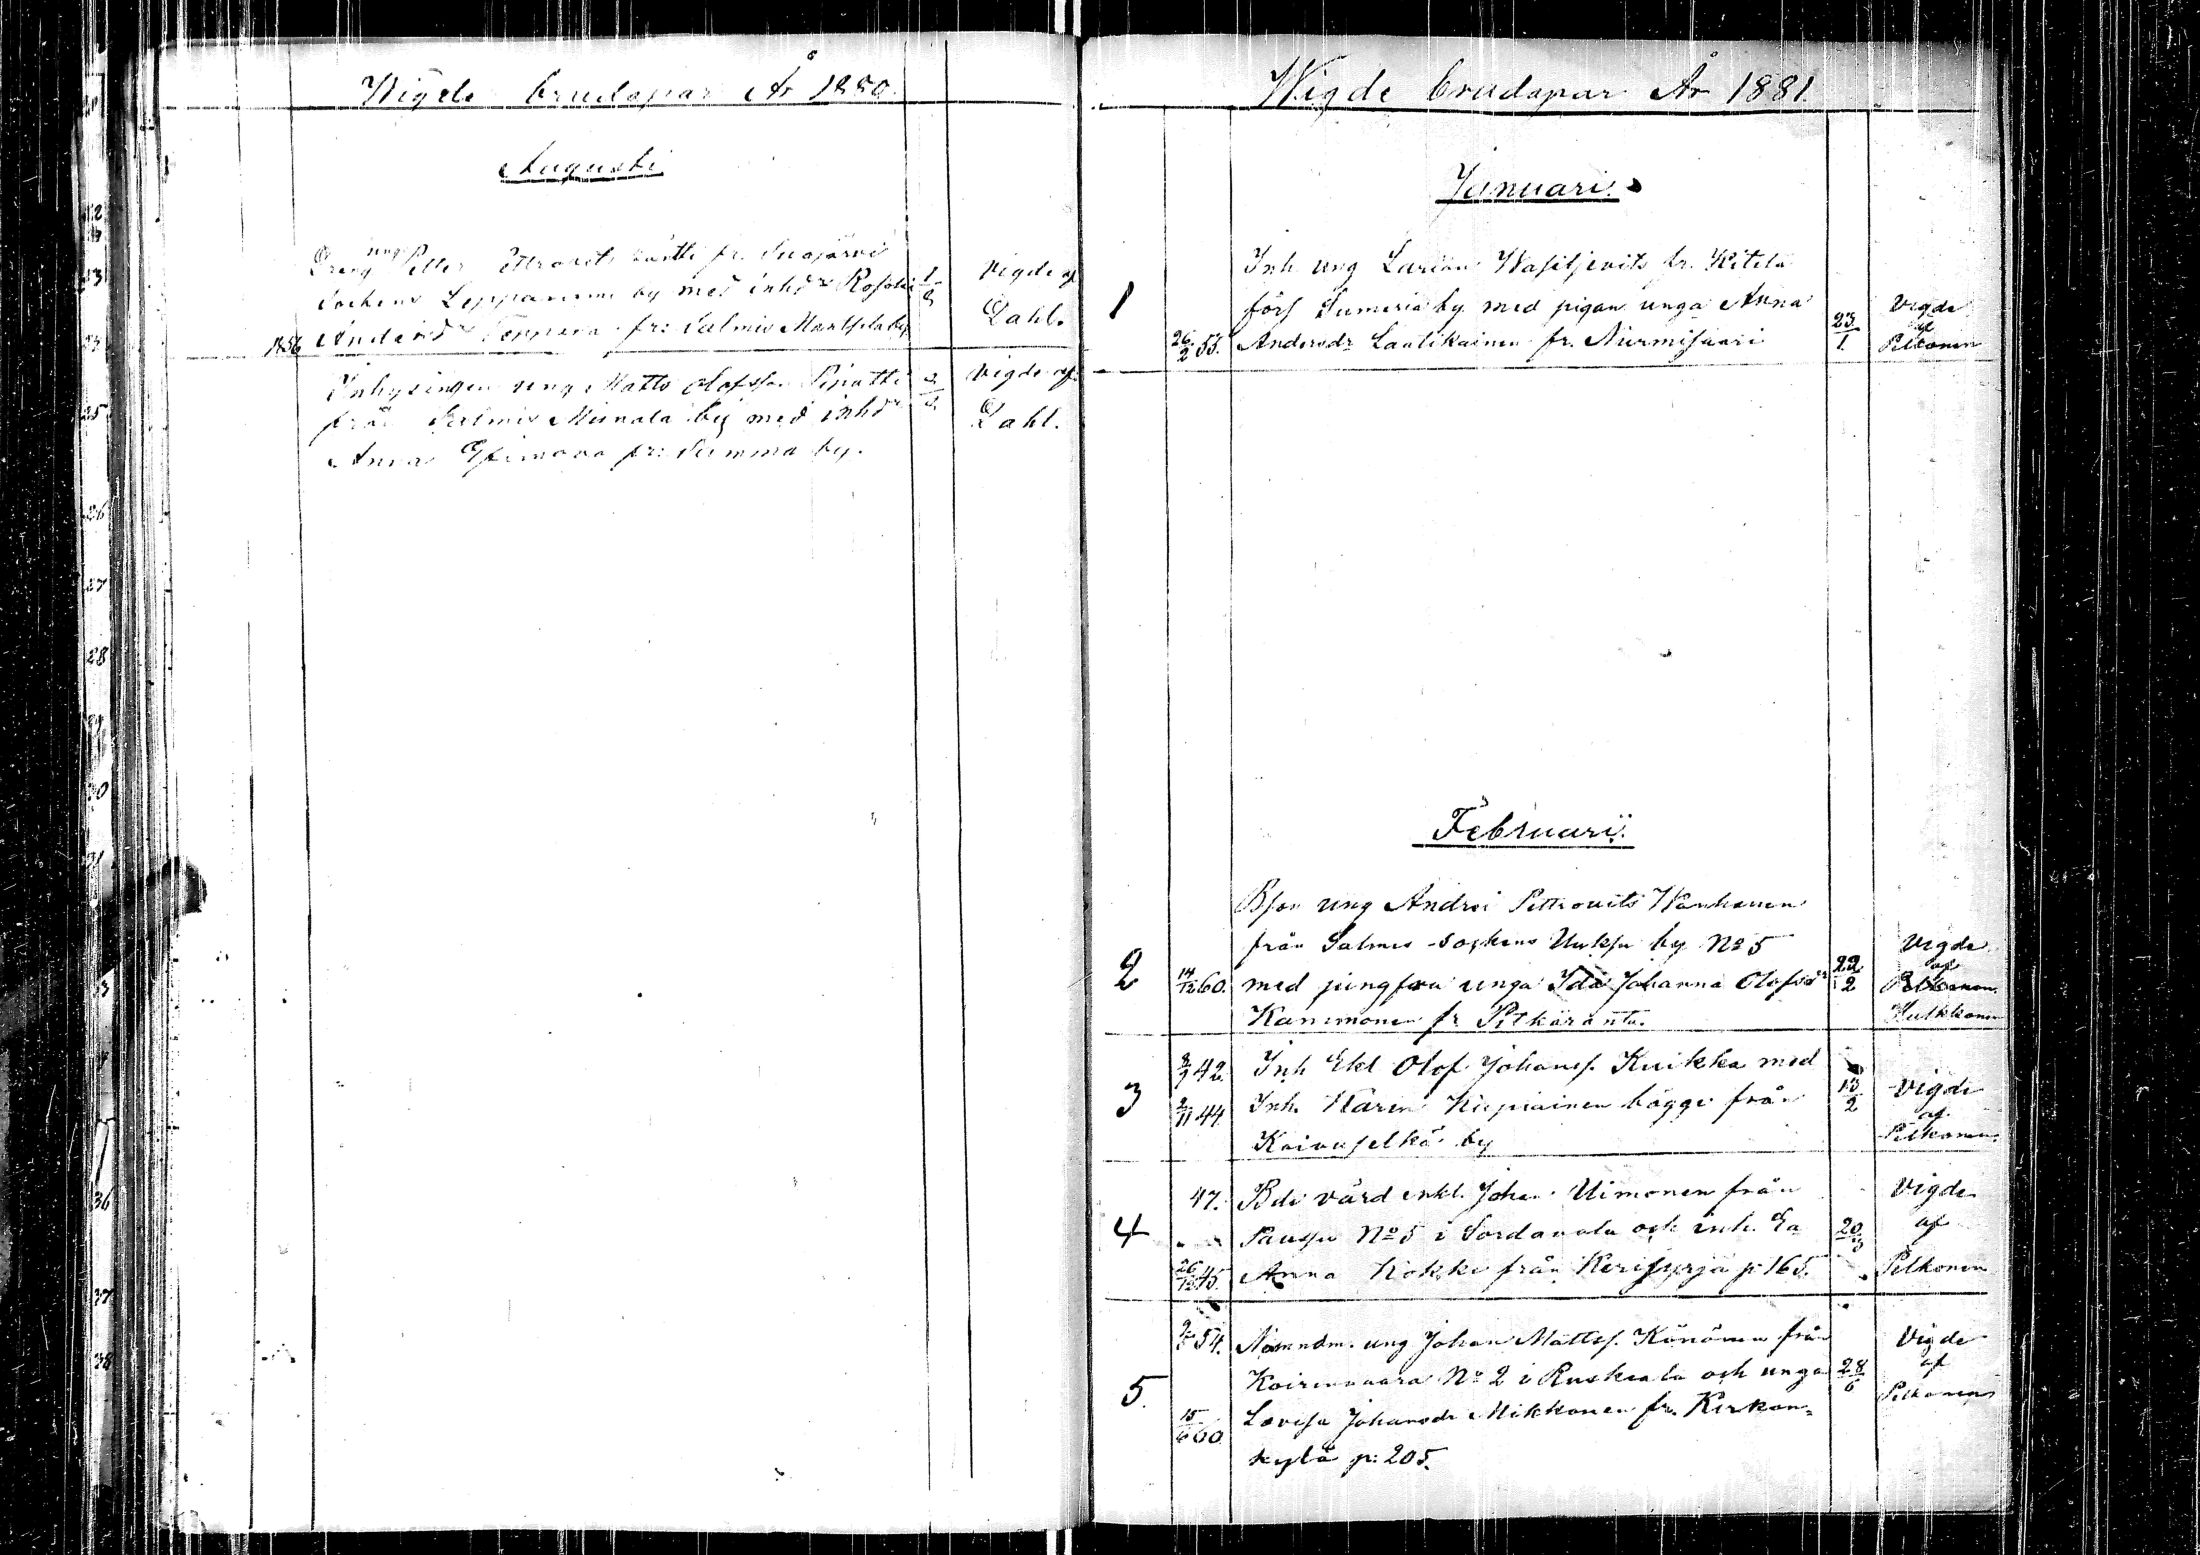 Wigde brudapar År 1880.
Augusti
Dreng ung Petter fr. Suojärvi
Sockens by med inhdr
1856 Andersdr fr: Salmis by
1/8
vigde af
Dahl.
Inhysingen ung Matts Olofsson
från Salmis Miinala by med inhdr
Anna fr: Summa by.
vigde af
Dahl.
Wigde brudapar År 1881.
Januari.
1
26/2 55.
Inh ung Larion Wasiljevits fr. Kitelä
förs Sumeria by med pigan unga Anna
Andersdr Laatikainen fr. Nurmisaari
23/1
Vigde
af
Pelkonen
Februari.
2
14/12 60.
Bson ung Andrei Pettrovits Wanhanen
från Salmis Sockens Uuksu by No 5
med jungfru unga Ida Johanna Olofsdr
Kammonen fr Pitkäranta.
22/2
Vigde
af
Pelkonen
Hukkonen
3
8/9 42.
2/11 44.
Inh Ekl Olof Johanss. Kuikka med
Inh. Karin Kiipiainen bägge från
Koivuselkä by
13/2
vigde
af
Pelkonen
4
47.
26/12 45.
Bde värd enkl. Johan Uimonen från
Paussu No 5 i Sordavala och inh. Ea
Anna Kokki från Kerisyrjä p. 165.
20/3
Vigde
af
Pelkonen
5.
54.
15/6 60
Nämndm. ung Johan Mattss. Könönen från
Koirinvaara No 2 i Ruskeala och unga
Lovisa Johansdr Mikkonen fr. Kirkon=
kylä p: 205.
28/6
Vigde
af
Pelkonen